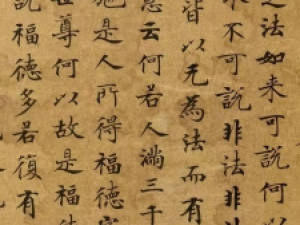 法如来可說何以
不可說非法非
皆以无為法而有
意云何若人滿三千
施是人所得福德寧
世尊何以故是福德
說福德多若復有